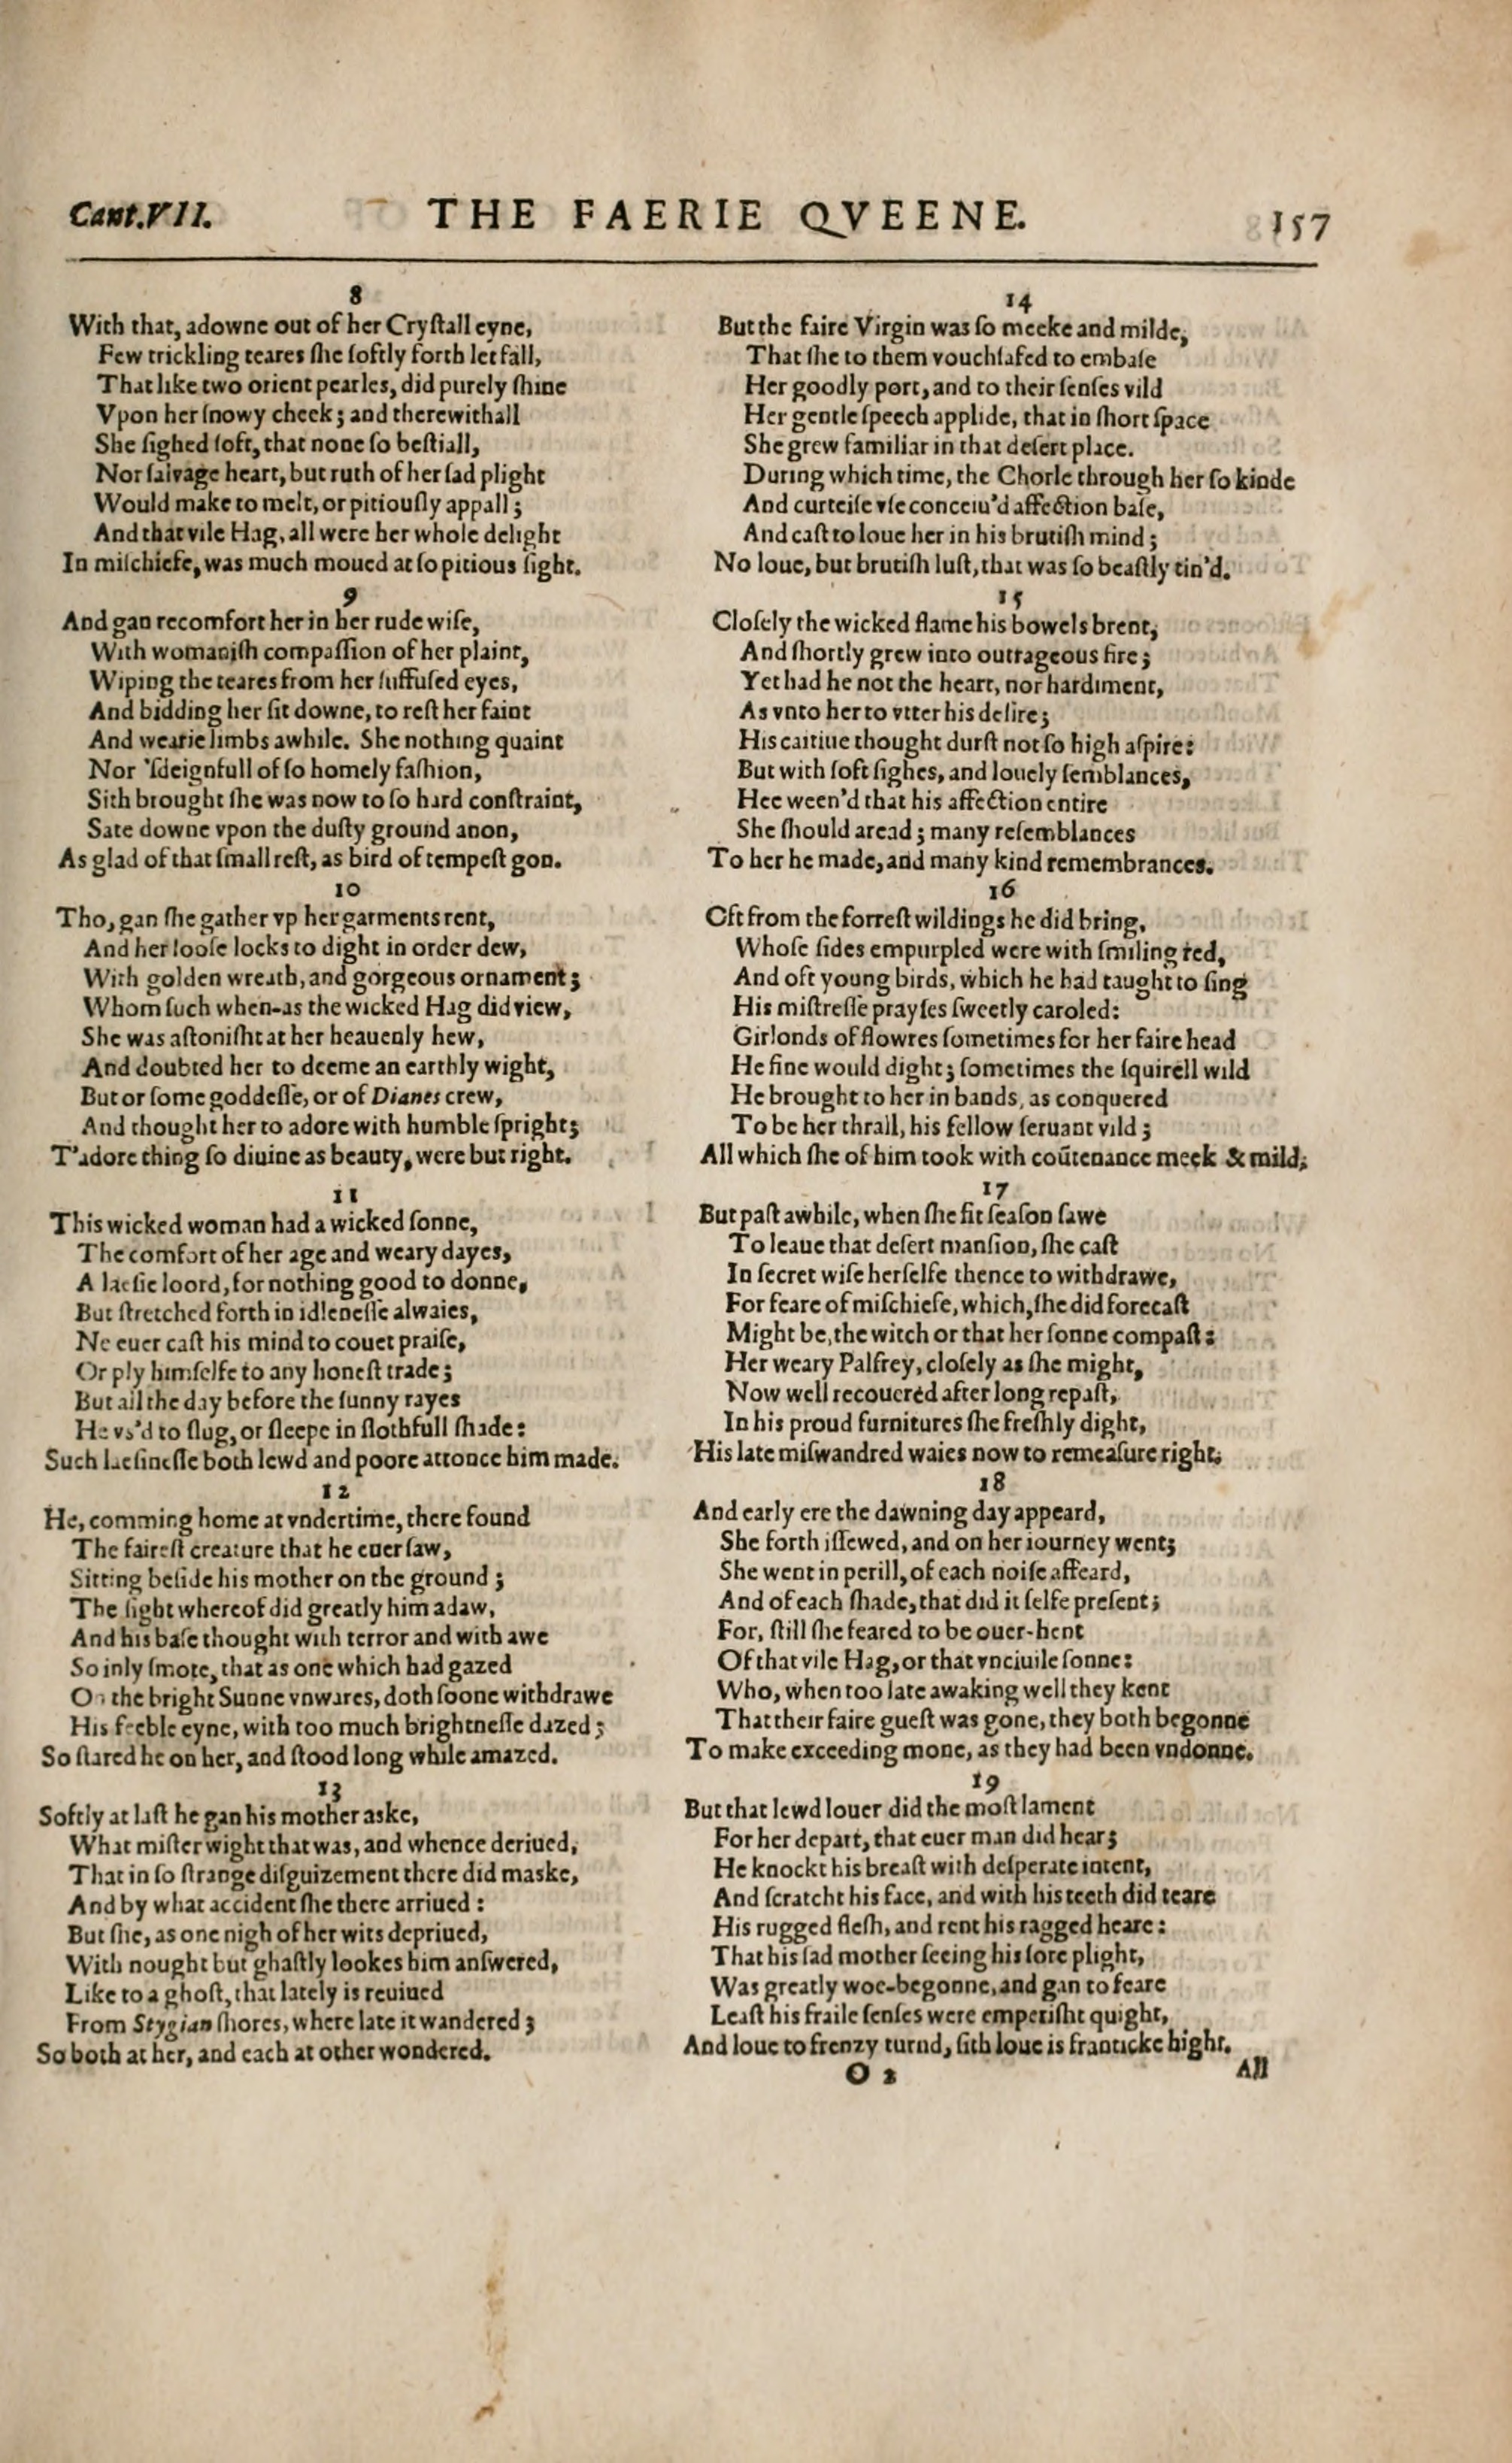 Cant.VII.
THE FAERIE QVEENE.
157
8
With that, adowne out of her Cryſtall eyne,
Few trickling teares ſhe ſoftly forth let fall,
That like two orient pearles, did purely ſhine
Vpon her ſnowy cheek; and therewithall
She ſighed ſoft, that none ſo beſtiall,
Nor ſalvage heart, but ruth of her ſad plight
Would make to melt, or pitiouſly appall;
And that vile Hag, all were her whole delight
In miſchiefe, was much moued at ſo pitious ſight.
9
And gan recomfort her in her rude wiſe,
With womaniſh compaſſion of her plaint,
Wiping the teares from her ſuffuſed eyes,
And bidding her ſit downe, to reſt her faint
And wearie limbs awhile. She nothing quaint
Nor 'ſdeignfull of ſo homely faſhion,
Sith brought ſhe was now to ſo hard conſtraint,
Sate downe vpon the duſty ground anon,
As glad of that ſmall reſt, as bird of tempeſt gon.
10
Tho, gan ſhe gather vp her garments rent,
And her looſe locks to dight in order dew,
With golden wreath, and gorgeous ornament;
Whom ſuch when-as the wicked Hag did view,
She was aſtoniſht at her heauenly hew,
And doubted her to deeme an earthly wight,
But or ſome goddeſſe, or of Dianes crew,
And thought her to adore with humble ſpright;
T'adore thing ſo diuine as beauty, were but right.
11
This wicked woman had a wicked ſonne,
The comfort of her age and weary dayes,
A laeſie loord, for nothing good to donne,
But ſtretched forth in idleneſſe alwaies,
Ne euer caſt his mind to couet praiſe,
Or ply himſelfe to any honeſt trade;
But all the day before the ſunny rayes
He vs'd to ſlug, or ſleepe in ſlothfull ſhade:
Such laeſineſſe both lewd and poore attonce him made.
12
He, comming home at vndertime, there found
The faireſt creature that he euer ſaw,
Sitting beſide his mother on the ground;
The ſight whereof did greatly him adaw,
And his baſe thought with terror and with awe
So inly ſmote, that as one which had gazed
On the bright Sunne vnwares, doth ſoone withdrawe
His feeble eyne, with too much brightneſſe dazed;
So ſtared he on her, and ſtood long while amazed.
13
Softly at laſt he gan his mother aske,
What miſter wight that was, and whence deriued,
That in ſo ſtrange diſguizement there did maske,
And by what accident ſhe there arriued:
But ſhe, as one nigh of her wits depriued,
With nought but ghaſtly lookes him anſwered,
Like to a ghoſt, that lately is reuiued
From Stygian ſhores, where late it wandered;
So both at her, and each at other wondered.
14
But the faire Virgin was ſo meeke and milde,
That ſhe to them vouchſafed to embaſe
Her goodly port, and to their ſenſes vild
Her gentle ſpeech applide, that in ſhort ſpace
She grew familiar in that deſert place.
During which time, the Chorle through her ſo kinde
And curteiſe vſe conceiu'd affection baſe,
And caſt to loue her in his brutiſh mind;
No loue, but brutiſh luſt, that was ſo beaſtly tin'd.
15
Cloſely the wicked flame his bowels brent,
And ſhortly grew into outrageous fire;
Yet had he not the heart, nor hardiment,
As vnto her to vtter his deſire;
His caitiue thought durſt not ſo high aſpire:
But with ſoft ſighes, and louely ſemblances,
Hee ween'd that his affection entire
She ſhould aread; many reſemblances
To her he made, and many kind remembrances.
16
Oft from the forreſt wildings he did bring,
Whoſe ſides empurpled were with ſmiling red,
And oft young birds, which he had taught to ſing
His miſtreſſe prayſes ſweetly caroled:
Girlonds of flowres ſometimes for her faire head
He fine would dight; ſometimes the ſquirell wild
He brought to her in bands, as conquered
To be her thrall, his fellow ſeruant vild;
All which ſhe of him took with coūtenance meek & mild.
17
But paſt awhile, when ſhe fit ſeaſon ſawe
To leaue that deſert manſion, ſhe caſt
In ſecret wiſe herſelfe thence to withdrawe,
For feare of miſchiefe, which, ſhe did forecaſt
Might be, the witch or that her ſonne compaſt:
Her weary Palfrey, cloſely as ſhe might,
Now well recouered after long repaſt,
In his proud furnitures ſhe freſhly dight,
His late miſwandred waies now to remeaſure right.
18
And early ere the dawning day appeard,
She forth iſſewed, and on her iourney went;
She went in perill, of each noiſe affeard,
And of each ſhade, that did it ſelfe preſent;
For, ſtill ſhe feared to be ouer-hent
Of that vile Hag, or that vnciuile ſonne:
Who, when too late awaking well they kent
That their faire gueſt was gone, they both begonne
To make exceeding mone, as they had been vndonne.
19
But that lewd louer did the moſt lament
For her depart, that euer man did hear;
He knockt his breaſt with deſperate intent,
And ſcratcht his face, and with his teeth did teare
His rugged fleſh, and rent his ragged heare:
That his ſad mother ſeeing his ſore plight,
Was greatly woe-begonne, and gan to feare
Leaſt his fraile ſenſes were emperiſht quight,
And loue to frenzy turnd, ſith loue is franticke hight.
O 2
All